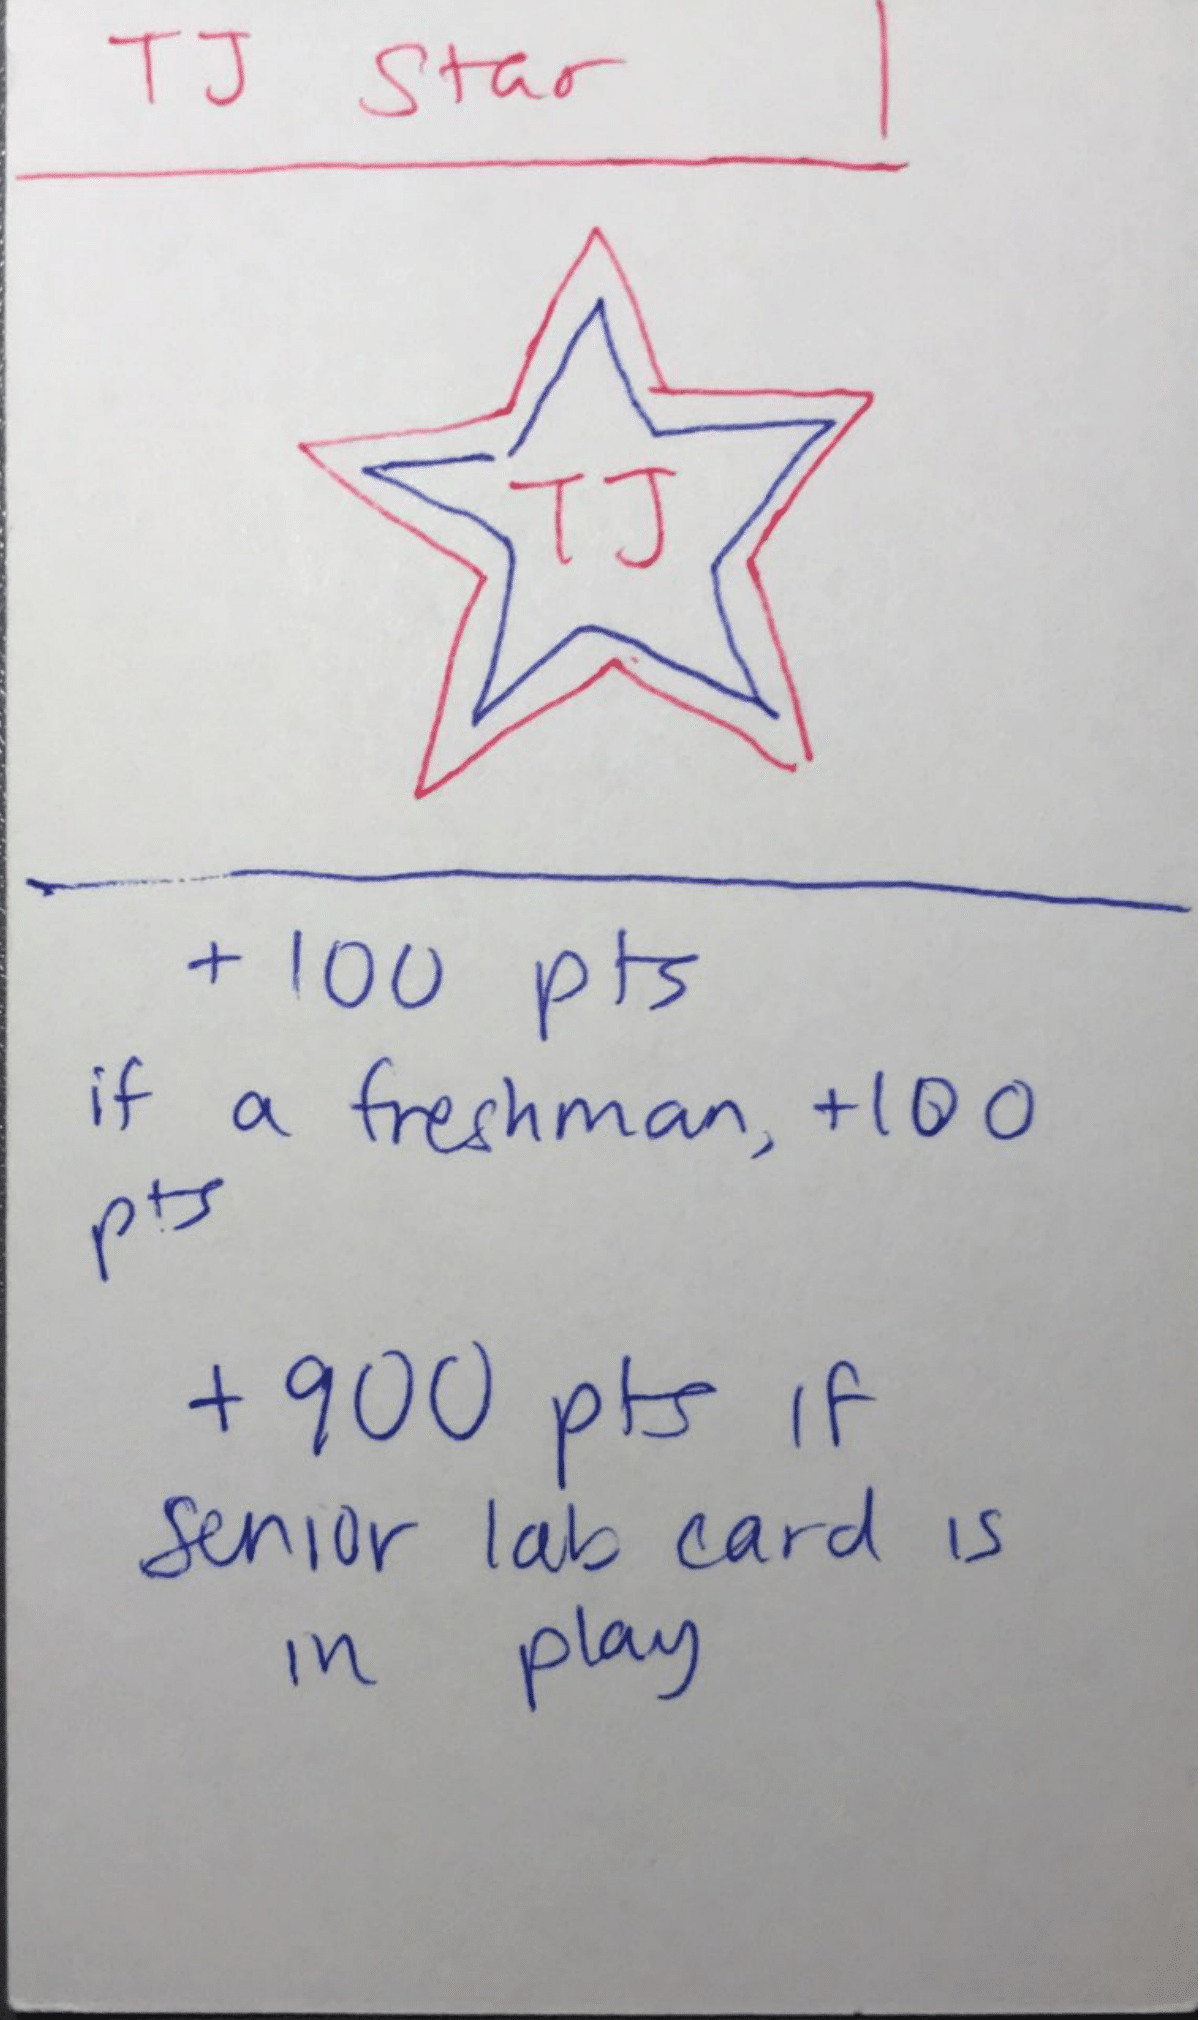 TJ Star
TJ
+100 pts
if a freshman, +100
pts
+900 pts if
senior lab card is
in play